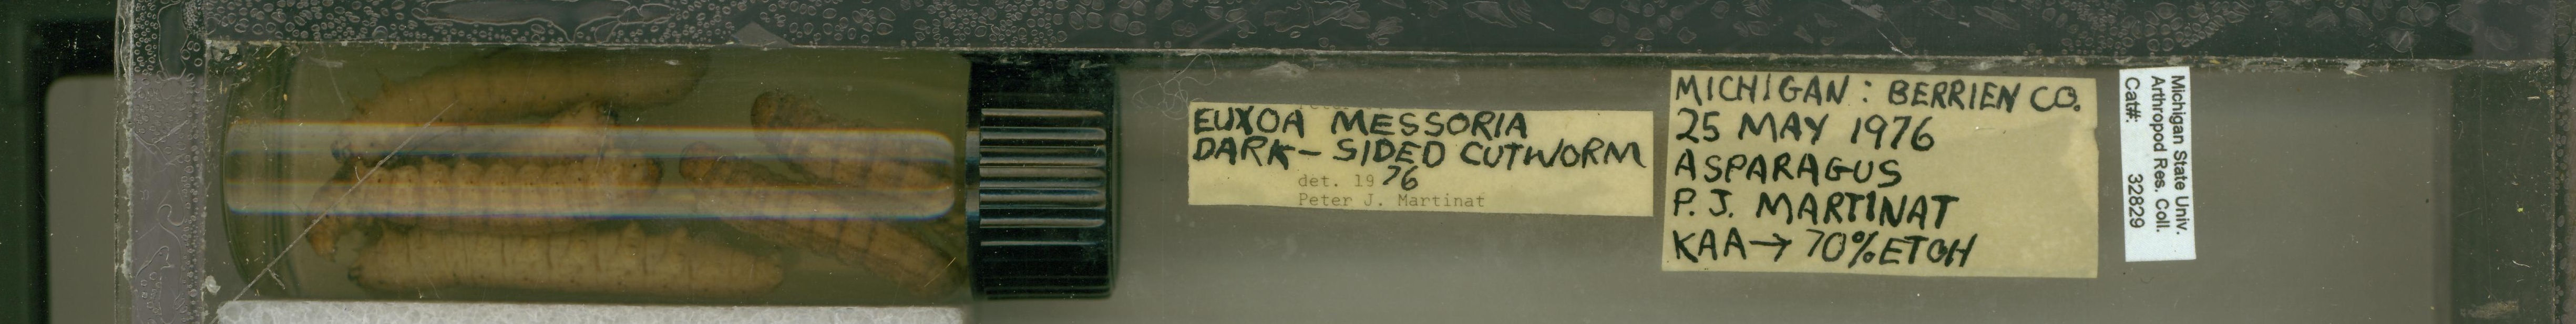 EUXOA MESSORIA
DARK-SIDED CUTWORM
det. 1976
Peter J. Martinat
MICHIGAN: BERRIEN CO.
25 MAY 1976
ASPARAGUS
P. J. MARTINAT
KAA→70% ETOH
Michigan State Univ.
Arthropod Res. Coll.
Cat#: 32829